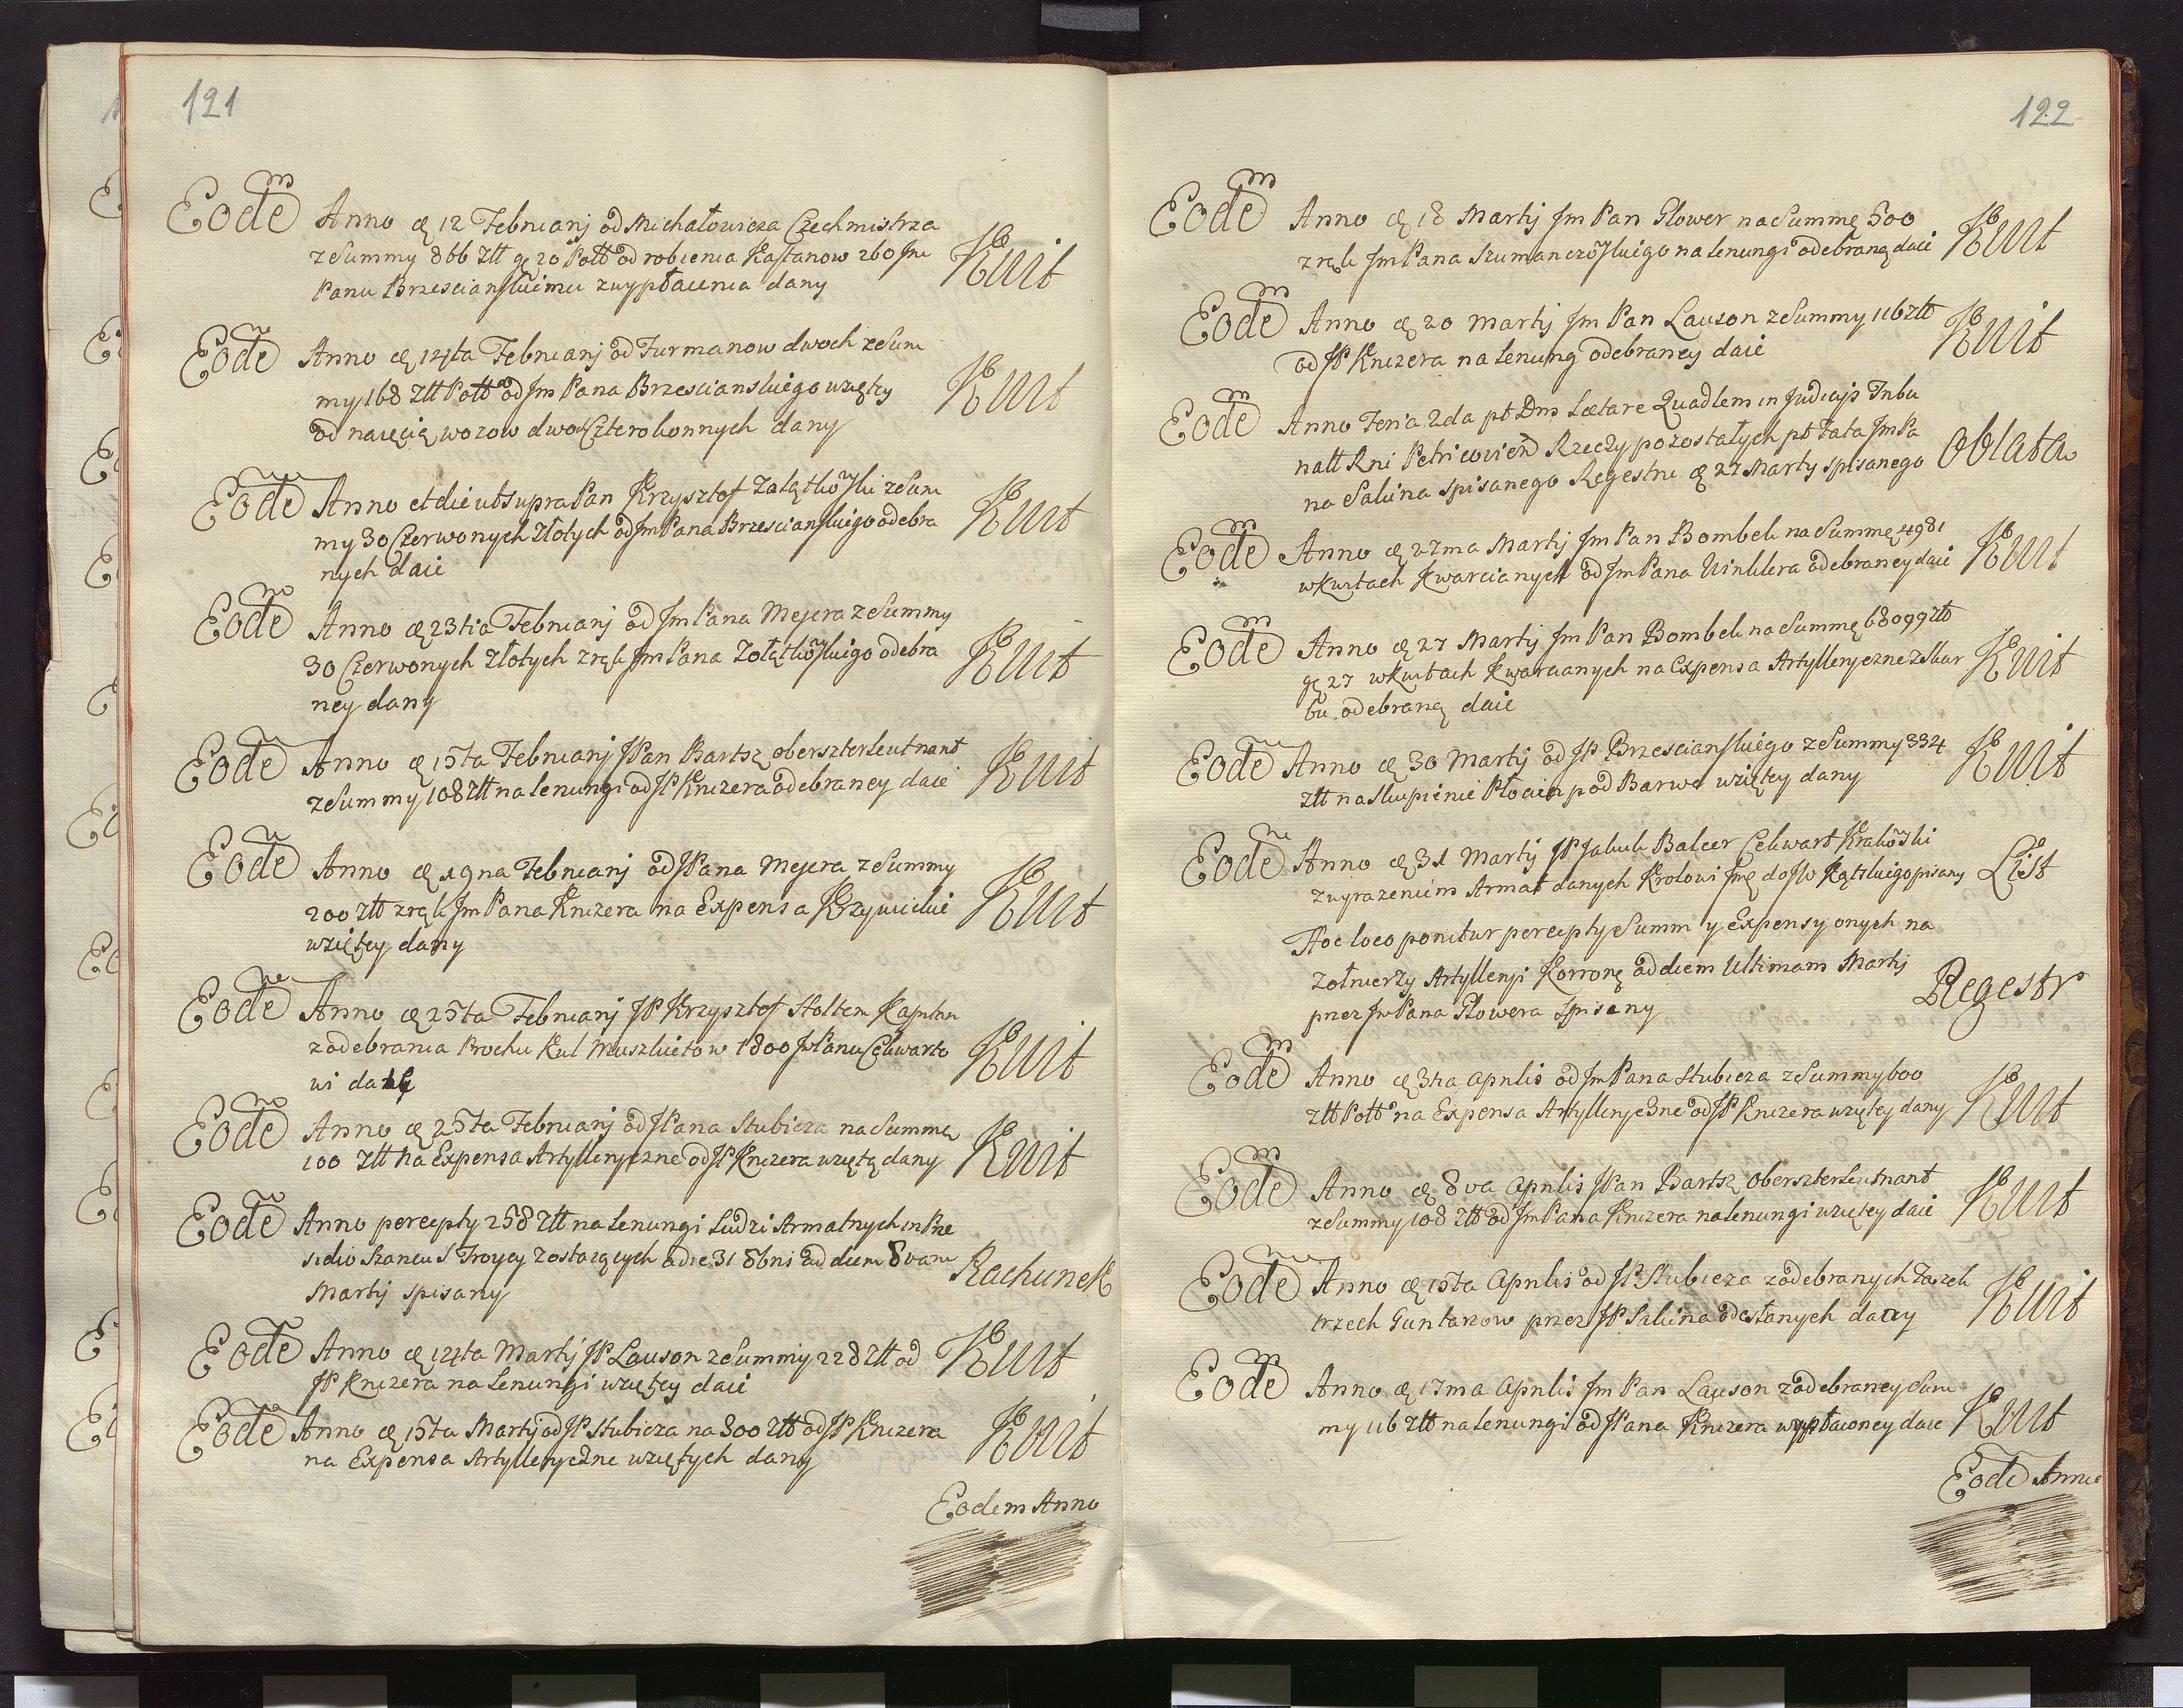 121
Eodē Anno ꝗ 12 Februarij od Michałowicza Czechmistrza
z Summy 866 Złł gꝛ 20 Polł od robienia Kaftanow 260 Jm
Panu Brzescianskiemu z wypłacenia dany Kwit
Eodē Anno ꝗ 14ta Februarij od Furmanow dwoch z Sum
my 168 Złł Polł od Jm Pana Brzescianskiego wzięty
od naięcia wozow dwoch Czterokonnych dany Kwit
Eodē Anno et die ut supra Pan Krzysztof Zołątkowski z Sum
my 30 Czerwonych Złotych od Jm Pana Brzescianskiego odebra
nych daie Kwit
Eodē Anno ꝗ 23tia Februarij od Jm Pana Mejera z Summy
30 Czerwonych Złotych z rąk Jm Pana Zołątkowskiego odebra
ney dany Kwit
Eodē Anno ꝗ 15ta Februarij JPan Bartsz obersterleutnant
z Summy 108 Złł na lenungi od JP Knizera odebraney daie Kwit
Eodē Anno ꝗ 19na Februarij od JPana Mejera z Summy
200 Złł z rąk Jm Pana Knizera na Expensa Krzywickie
wziętey dany Kwit
Eodē Anno ꝗ 25ta Februarij JP Krzysztof Holten Kapitan
z odebrania Prochu Kul Muszkietow 1800 Jm Panu Cekwarto
wi dany Kwit
Eodē Anno ꝗ 25ta Februarij od JPana Stubicza na Summę
100 Złł na Expensa Artylleryczne od JP Knizera wziętą dany Kwit
Eodē Anno percepty 258 Złł na lenungi Ludzi Armatnych in Prae
sidio Szancu S Troycy zostaiących a die 31 8bris ad diem 8vam
Martij spisany Rachunek
Eodē Anno ꝗ 14ta Martij JP Lauson z Summy 228 Złł od
JP Knizera na Lenungi wziętey daie Kwit
Eodē Anno ꝗ 15ta Martij od JP Stubicza na 800 Złł od JP Knizera
na Expensa Artylleryczne wziętych dany Kwit
Eodem Anno
122
Eodē Anno ꝗ 18 Martij Jm Pan Glower na Summę 500
z rąk Jm Pana Szumanczowskiego na lenungi odebraną daie Kwit
Eodē Anno ꝗ 20 Martij Jm Pan Lauson z Summy 116 złł
od JP Knizera na lenung odebraney daie Kwit
Eodē Anno Feria 2da pt Dm Laetare Quadlem in Judicijs Tribu
nall Rni Petricovien Rzeczy pozostałych pt Fata Jm Pa
na Sakina spisanego Regestru ꝗ 27 Marty spisanego Oblata
Eodē Anno ꝗ 27ma Martij Jm Pan Bombek na Summę 4981
w Kwitach Kwarcianych od Jm Pana Winklera odebraney daie Kwit
Eodē Anno ꝗ 27 Martij Jm Pan Bombek na Summę 68099 złł
gꝛ 27 w Kwitach Kwarcianych na Expensa Artylleryczne z Skar
bu odebraną daie Kwit
Eodē Anno ꝗ 30 Martij od JP Brzescianskiego z Summy 334
Złł na Skupienie Płocien pod Barwe wziętey dany Kwit
Eodē Anno ꝗ 31 Martij JP Jakub Balcer Cekwart Krakowski
z wyrazeniem Armat danych Krolowi Jmę do JW Kątskiego pisany List
Hoc loco ponitur percepty Summ y Expensy onych na
Zołnierzy Artyllerji Koronę ad diem Ultimam Martij
przez JmPana Glowera Spisany Regestr
Eodē Anno ꝗ 3tia Aprilis od Jm Pana Stubicza z Summy 600
Złł Polł na Expensa Artylleryczne od JP Knizera wziętey dany Kwit
Eodē Anno ꝗ 8va Aprilis JPan Bartsz Obersterleutnant
z Summy 108 Złł od Jm Pana Knizera na lenungi wziętey daie Kwit
Eodē Anno ꝗ 15ta Aprilis od JP Stubicza z odebranych
trzech Funtarzow przez JP Sakina odesłanych dany Kwit
Eodē Anno ꝗ 17ma Aprilis Jm Pan Lauson z odebraney Sum
my 116 Złł na lenungi od JPana Knizera wypłaconey daie Kwit
Eodē Anno